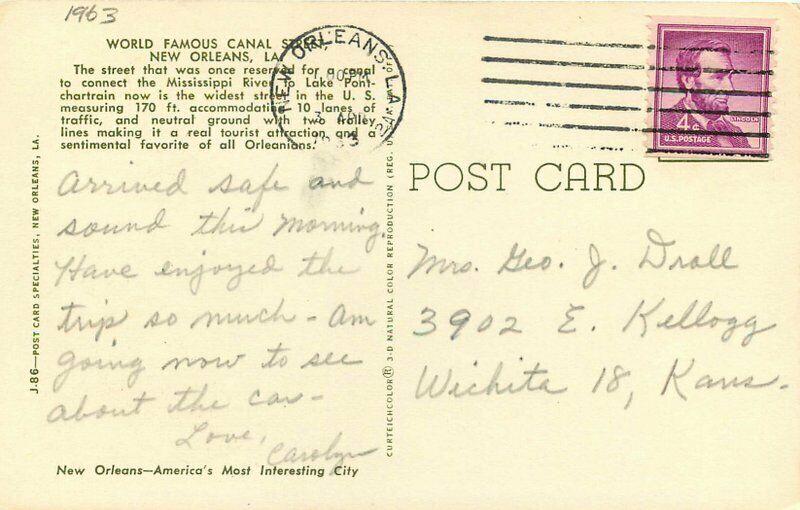 1963
WORLD FAMOUS CANAL STREET,
NEW ORLEANS, LA.
The street that was once reserved for a canal
to connect the Mississippi River to Lake Pont-
chartrain now is the widest street in the U. S.
measuring 170 ft. accommodating 10 lanes of
traffic, and neutral ground with two trolley
lines making it a real tourist attraction and
sentimental favorite of all Orleanians.
Arrived safe and
sound this morning.
Have enjoyed the
trip so much - Am
going now to see
about the car -
Love,
Carolyn
New Orleans—America's Most Interesting City
J-86—POST CARD SPECIALTIES, NEW ORLEANS, LA.
CURTEICHCOLOR® 3-D NATURAL COLOR REPRODUCTION (REG. U
NEW ORLEANS, LA.
3
1963
LINCOLN
4¢
U.S. POSTAGE
POST CARD
Mrs. Geo. J. Droll
3902 E. Kellogg
Wichita 18, Kans.